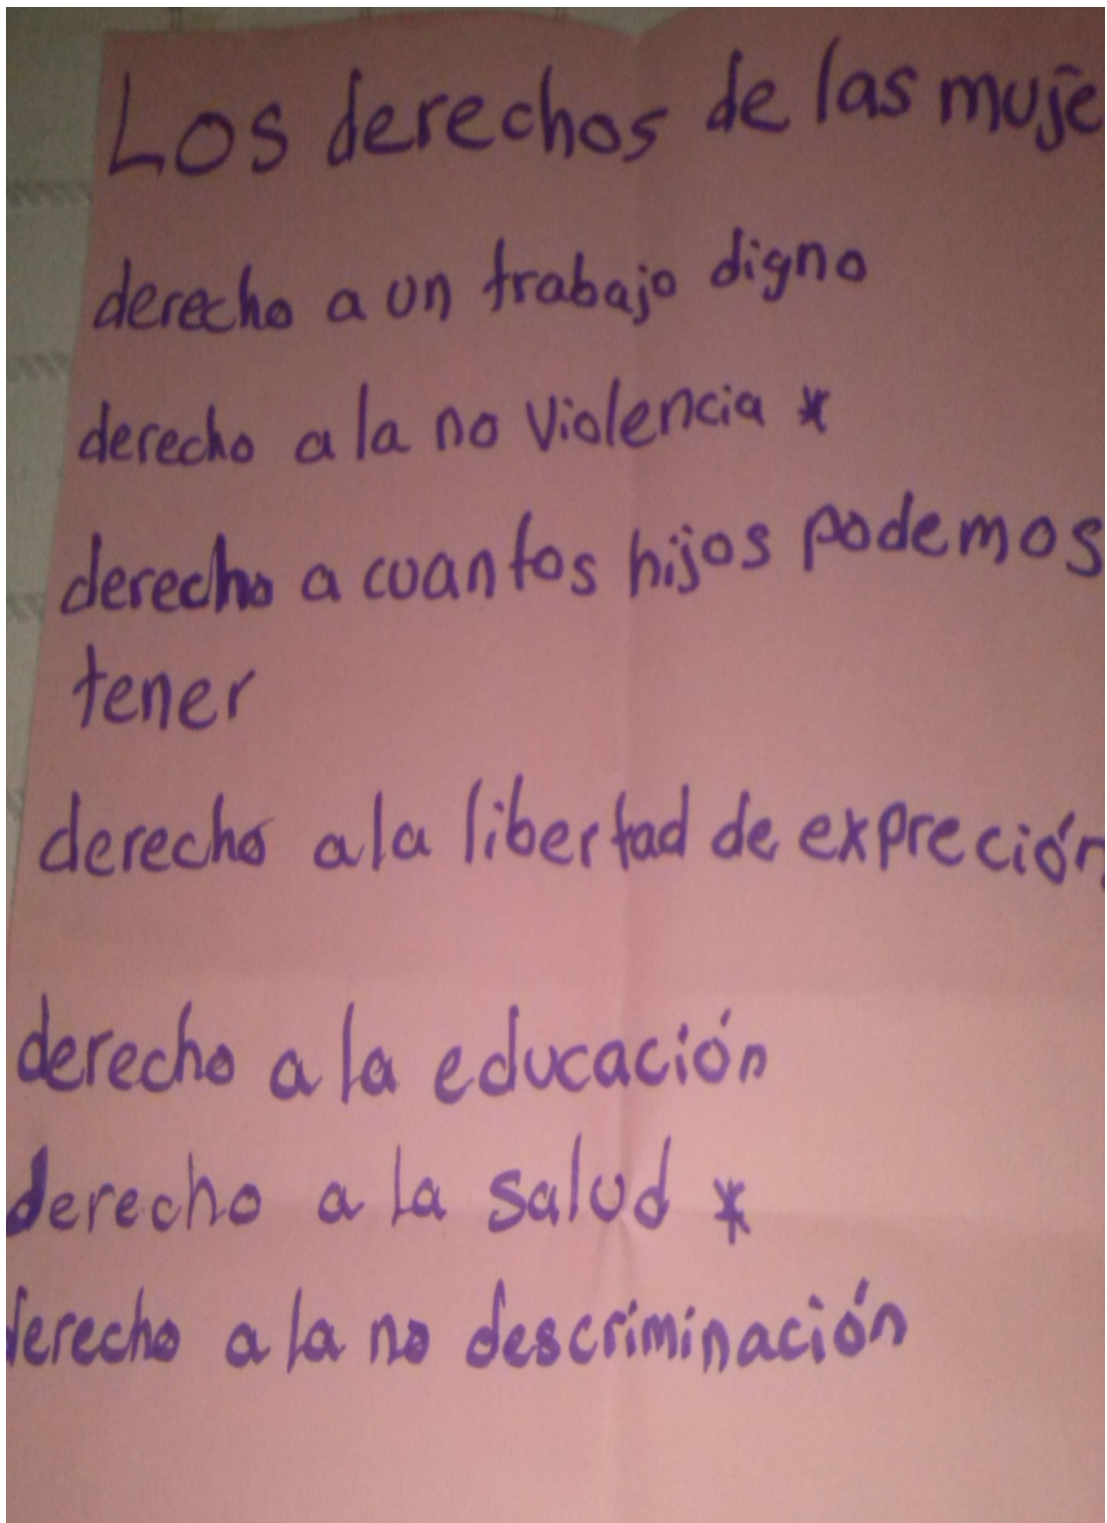 Los derechos de las muje
derecho a un trabajo digno
derecho a la no violencia *
derecho a cuantos hijos podemos
tener
derecho a la libertad de expreción
derecho a la educación
derecho a la salud *
derecho a la no descriminación